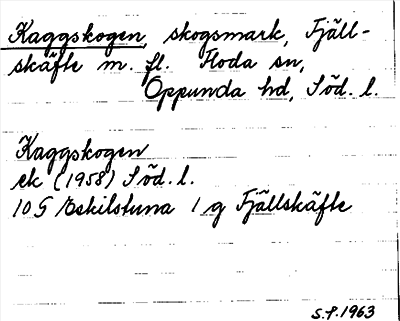 Kaggskogen, skogsmark, Fjäll-
skäfte m. fl. Floda sn,
Oppunda hd, Söd. l.
Kaggskogen
ek (1958) Söd. l.
10 G Eskilstuna 1 g Fjällskäfte
S.P. 1963